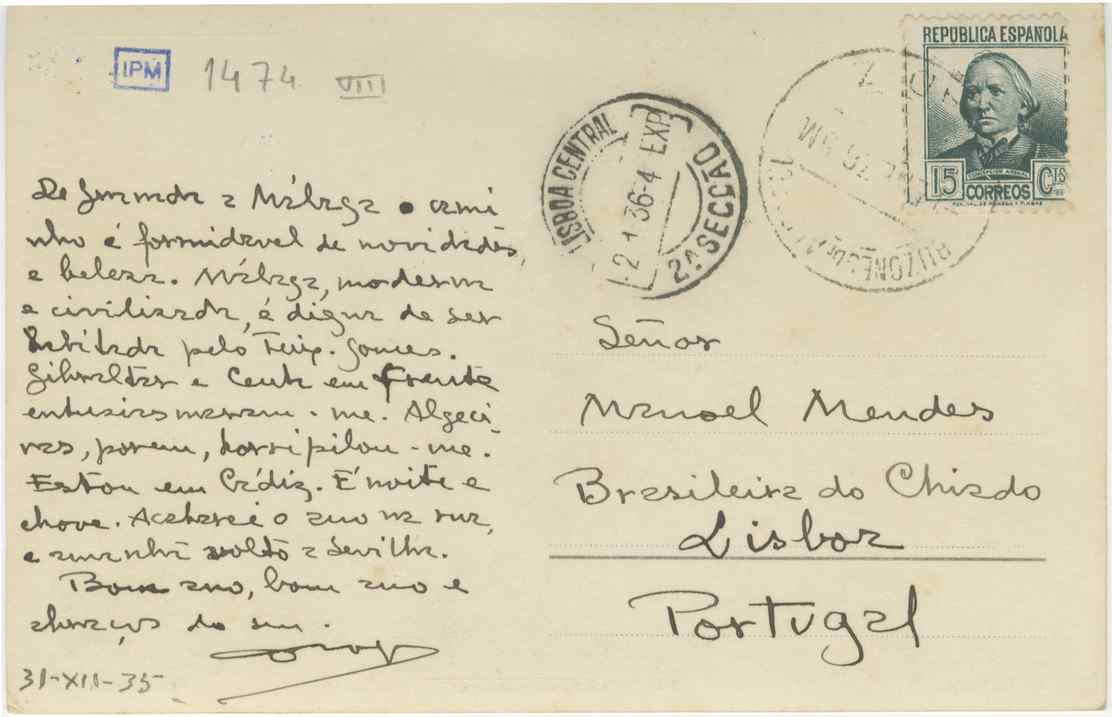 IPM 1474 VIII
De Granada a Málaga o cami
nho é formidavel de novidades
e beleza. Málaga, moderna
e civilizada, é digna de ser
habitada pelo Teix. Gomes.
Gibraltar e Ceuta em frente
entusiasmaram-me. Algeci
ras, porem, horripilou-me.
Estou em Cádiz. É noite e
chove. Acabarei o ano na rua,
e amanhã volto a Sevilha.
Bom ano, bom ano e
abraços do seu.
31-XII-35
REPÚBLICA ESPAÑOLA
15 CTS
CORREOS
LISBOA CENTRAL
-2 1 36-4 EXP.
2A SECCÃO
BUZONES DE
Señor
Manoel Mendes
Brasileira do Chiado
Lisboa
Portugal